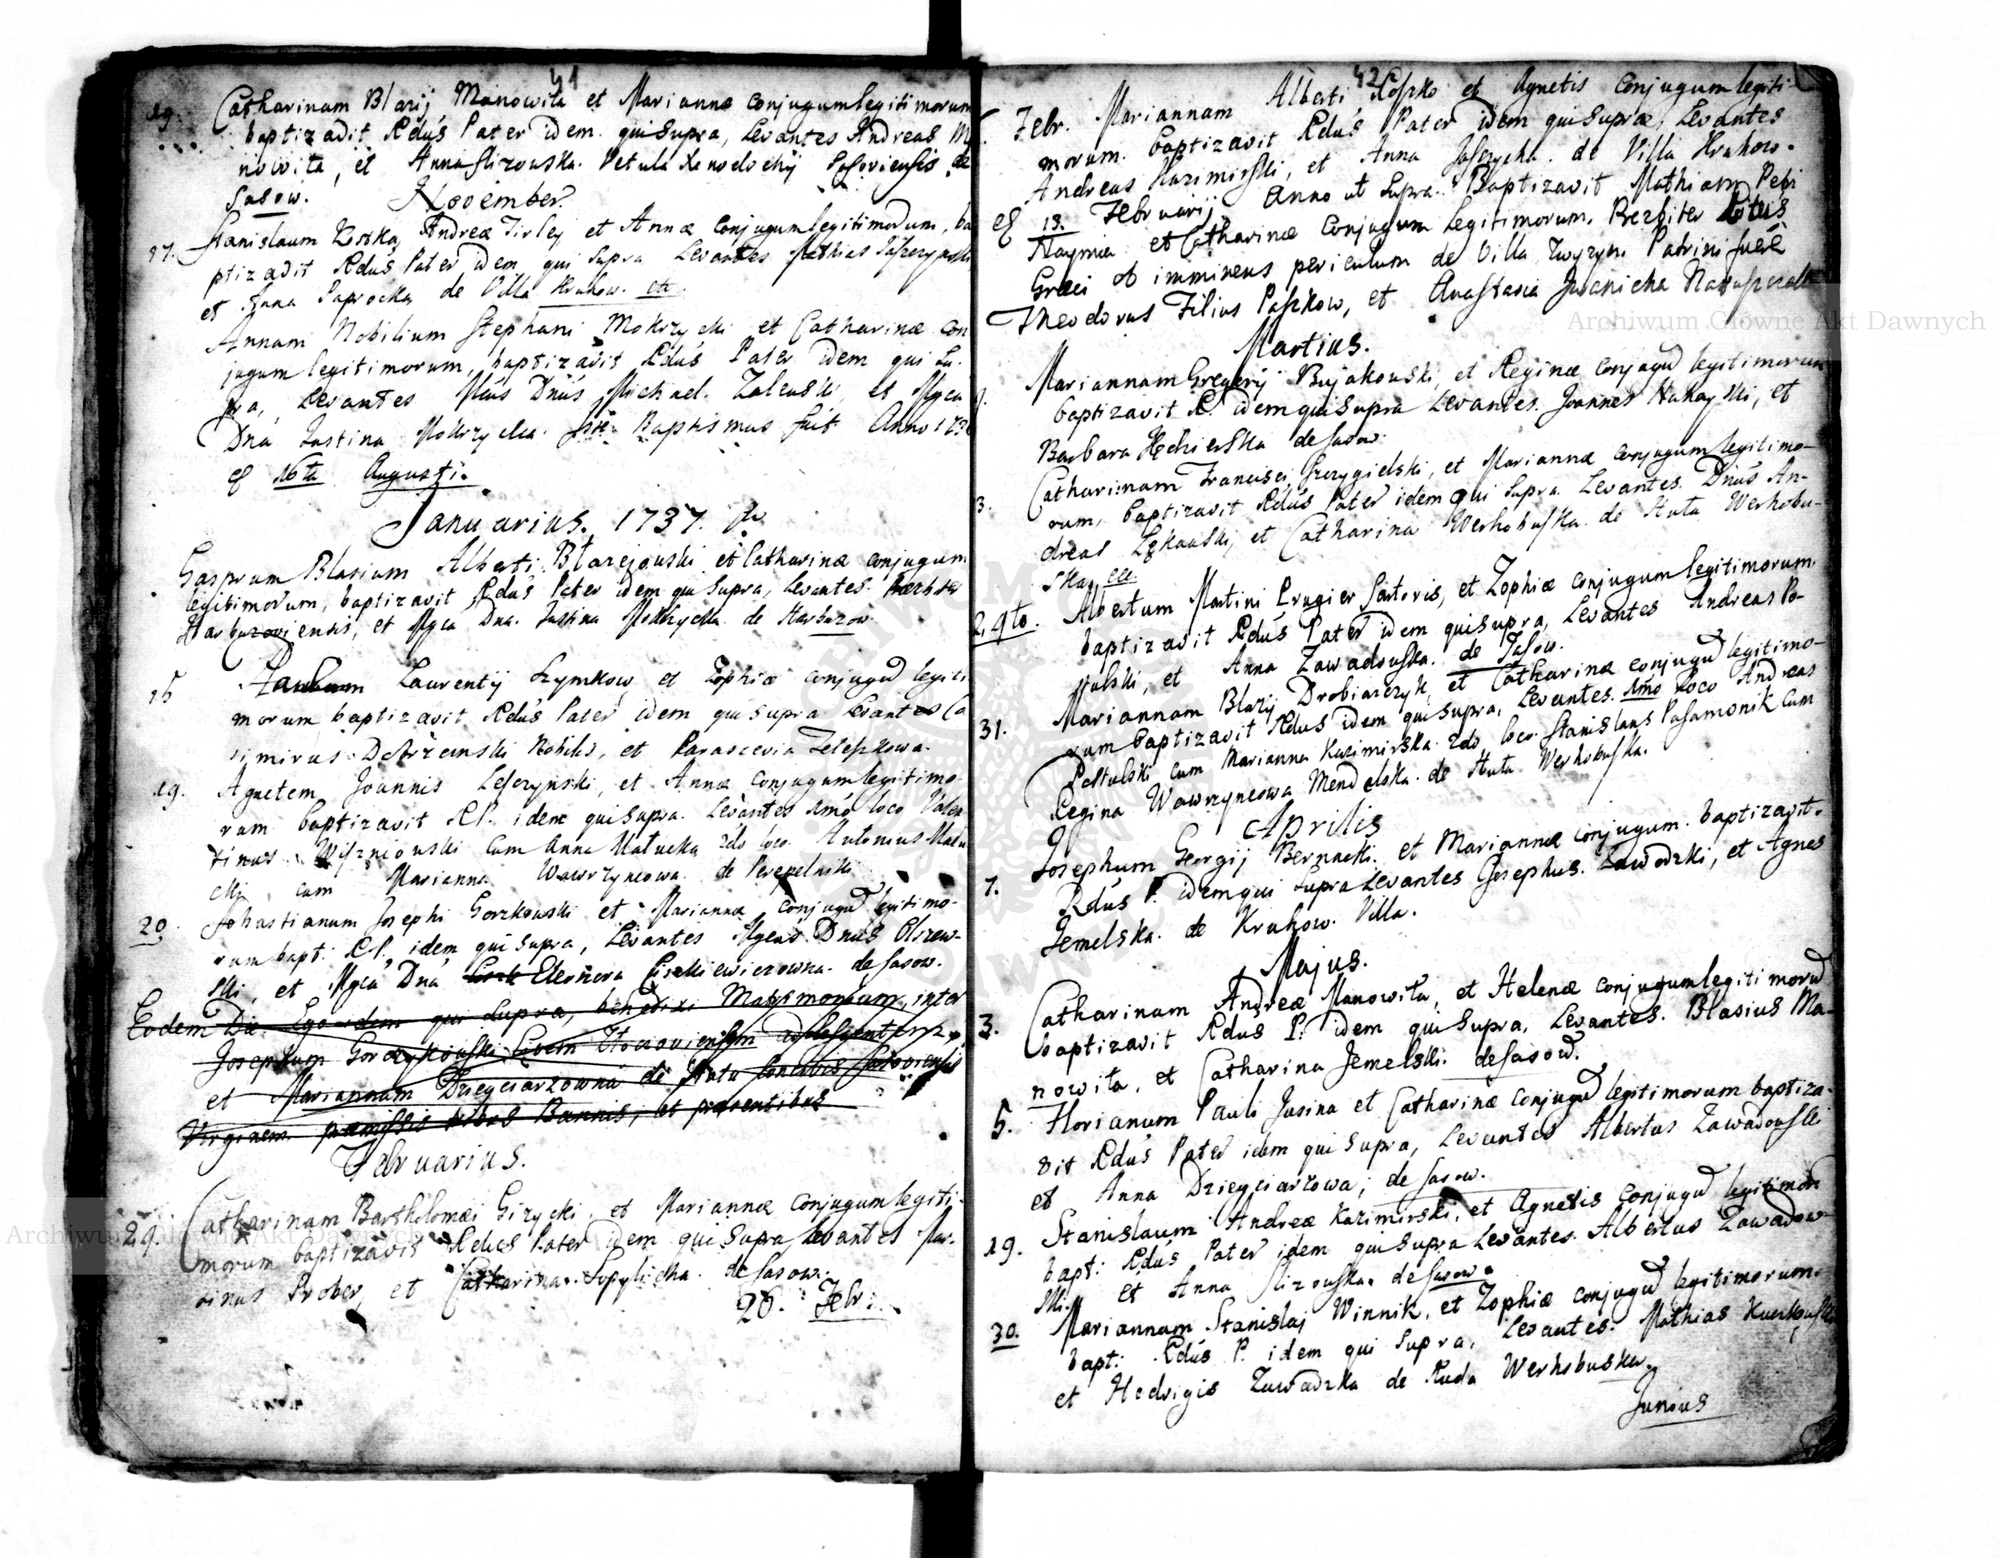 41
19. Catharinam Blazij Manowita et Mariannæ conjugum legitimorum
baptizavit Rdus Pater idem qui supra, Levantes Andreas Ma
nowita, et Anna Slizowska. Vetula Xenodochij Sasoviensis de
Sasow.
November.
17. Stanislaum Kostka Andreæ Tirley et Annæ Conjugum legitimorum, ba
ptizavit Rdus Pater idem qui supra Levantes Mathias
et Anna Paprocka de Villa Kruhow. etc.
Annam Nobilium Stephani Mokrzycki et Catharinæ con
jugum legitimorum, baptizavit Rdus Pater idem qui Su-
pra, Levantes Mcus Dnus Michael Zaleuski, et Mgca
Dna Justina Mokrzycka. Iste Baptismus fuit Anno 173
& 16ta Augusti.
Januarius. 1737.
Gasprum Blasium Alberti Błazejouski et Catharinæ conjugum
legitimorum, baptizavit Rdus Pater idem qui supra, Levantes.
Harbuzoviensis, et Mgca Dna. Justina Mokrzycka. de Harbuzow.
15 Laurentij Szymkow et Zophiæ conjugu legiti
morum baptizavit Rdus Pater idem qui supra Levantes Ca
simirus Nobilis, et Parascevia Teleszkowa.
19. Agnetem Joannis Leszczynski, et Annæ conjugum legitimo
rum baptizavit R.P. idem qui supra. Levantes Imo loco Valen
tinus Wiszniouski cum Anna Matucka 2do loco Antonius Matu
cki cum Marianna Wawrzyncowa de Perepelniki
20. Sebastianum Josephi Gorzkouski et Mariannæ conjugu legitimo-
rum bapt: R.P. idem qui supra, Levantes Mgcus Dnus Olszew-
ski, et Mgca Dna Eleonora de Sasow.
Eodem Die Ego idem qui supra, benedixi Matrimonium inter
Josephum
et Mariannam Dziegciarzowna de Huta
Virginem. præmissis tribus Bannis, et præsentibus
Februarius.
29. Catharinam Bartholomæi Gizycki, et Mariannæ conjugum legiti-
morum baptizavit Rdus Pater idem qui supra Levantes Mar-
tinus Prober, et Catharina de Sasow.
28. Febr:
42
Febr. Mariannam Alberti Koszko et Agnetis conjugum legiti-
morum. baptizavit Rdus Pater idem qui supra, Levantes
Andreas Kazimirski, et Anna de Villa Kruhow.
& 13. Februarij Anno ut supra. Baptizavit Mathiam Petri
et Catharinæ Conjugum legitimorum, Prezbiter Ritus
Græci ob imminens periculum de Villa Zwyzyn Patrini fuere
Theodorus Filius Paszkow, et Anastasia Iwanicha
Martius.
Mariannam Gregorij Bujakouski, et Reginæ conjugu legitimorum
baptizavit R. idem qui supra Levantes. Joannes et
Barbara de Sasow.
3. Catharinam Francisci Grzygielski, et Mariannæ conjugum legitimo-
rum, baptizavit Rdus Pater idem qui supra Levantes. Dnus An-
dreas et Catharina Werhobuska de Huta Werhobu-
ska etc.
29to. Albertum Martini Prugier Sartoris, et Zophiæ conjugum legitimorum
baptizavit Rdus Pater idem qui supra, Levantes Andreas Po-
stulski, et Anna Zawadouska. de Sasow.
31. Mariannam Blazij Drobiarczyk, et Catharinæ conjugu legitimo-
rum baptizavit Rdus idem qui supra, Levantes. Imo loco Andreas
Postulski cum Marianna Kazimirska 2do loco Stanislaus Pasamonik cum
Regina Wawrzyncowa Mendelska. de Huta Werhobuska.
Aprilis
7. Josephum Georgij Bernacki. et Mariannæ conjugum. baptizavit.
Rdus P. idem qui supra Levantes Josephus. Zawodzki, et Agnes
Jemelska. de Kruhow. Villa.
Majus.
3. Catharinam Andreæ Manowita, et Helenæ conjugum legitimoru
baptizavit Rdus P. idem qui supra, Levantes. Blasius Ma-
nowita, et Catharina Jemelski. de Sasow.
5. Florianum Pauli Jusina et Catharinæ Conjugu legitimorum baptiza-
vit Rdus Pater idem qui supra, Levantes Albertus Zawadouski
et Anna Dziegciarzowa, de Sasow.
19. Stanislaum Andreæ Kazimirski, et Agnetis conjugu legitimoru
bapt: Rdus Pater idem qui supra Levantes. Albertus Zawadow-
ski et Anna Slizouska. de Sasow.
30. Mariannam Stanislaj Winnik, et Zophiæ conjugu legitimorum.
bapt: Rdus P. idem qui supra, Levantes. Mathias
et Hedvigis Zawadzka de Ruda Werhobuska.
Junius
Archiwum Główne Akt Dawnych
Archiwum Główne Akt Dawnych